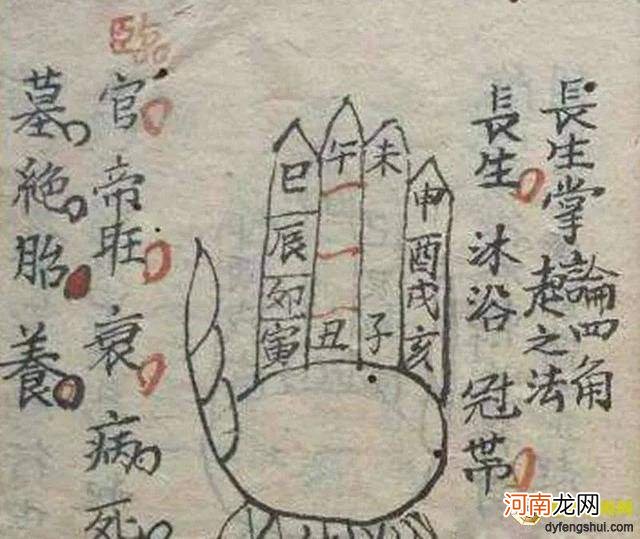 長生掌
論四角
起之法
長生 沐浴 冠帶
巳 午 未 申
辰 酉
卯 戌
寅 丑 子 亥
臨官 帝旺 衰 病 死
墓 絶 胎 養
河南龙网
dyfengshui.com